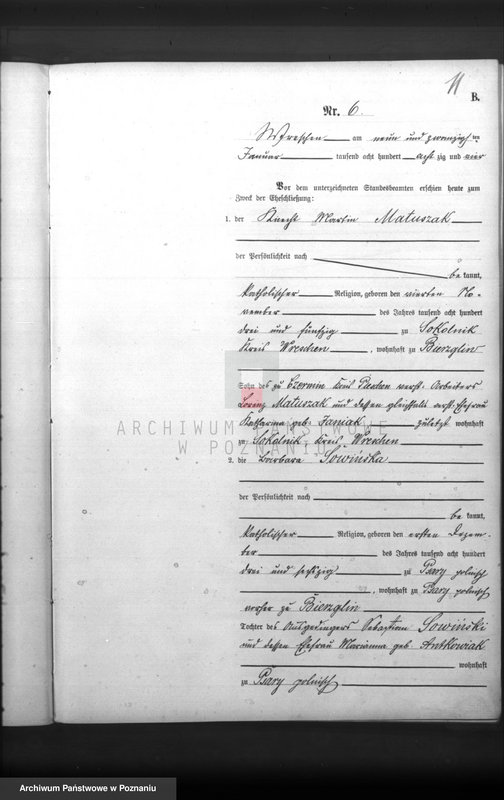 11
B.
Nr. 6.
Wreschen am neun und zwanzigsten
Januar tausend acht hundert acht zig und vier
Vor dem unterzeichneten Standesbeamten erschien heute zum
Zweck der Eheschließung:
1. der Knecht Martin Matuszak
der Persönlichkeit nach
be kannt,
katholischer Religion, geboren den vierten No-
vember des Jahres tausend acht hundert
drei und fünfzig zu Sokolnik
Kreis Wreschen, wohnhaft zu Bierzglin
Sohn des zu Czermin Kreis Pleschen verst. Arbeiters
Lorenz Matuszak und dessen gleichfalls verst. Ehefrau
Katharina geb. Janiak zuletzt wohnhaft
zu Sokolnik Kreis Wreschen
ARCHIWUM PAŃSTWOWE
W POZNANIU
2. die Barbara Sowińska
der Persönlichkeit nach
be kannt,
katholischer Religion, geboren den ersten Dezem-
ber des Jahres tausend acht hundert
drei und sechszig zu Bary polnisch
, wohnhaft zu Bary polnisch
vorher zu Bierzglin
Tochter des Ausgedingers Sebastian Sowiński
und dessen Ehefrau Marianna geb. Antkowiak
wohnhaft
zu Bary polnisch
Archiwum Państwowe w Poznaniu